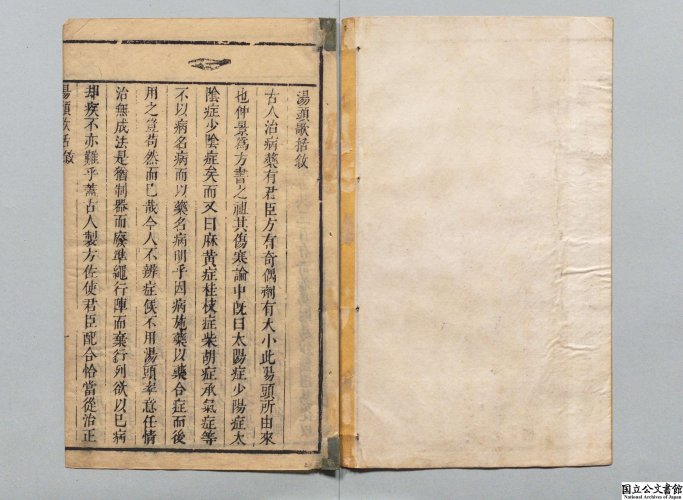 湯頭歌括敘
古人治病藥有君臣方有奇偶劑有大小此湯頭所由來
也仲景爲方書之祖其傷寒論中旣曰太陽症少陽症太
陰症少陰症矣而又曰麻黃症桂枝症柴胡症承氣症等
不以病名病而以藥名病明乎因病施藥以藥合症而後
用之豈苟然而已哉今人不辨症候不用湯頭率意任情
治無成法是猶制器而廢準繩行陣而棄行列欲以已病
却疾不亦難乎蓋古人製方佐使君臣配合恰當從治正
湯頭歌括敘
国立公文書館
National Archives of Japan